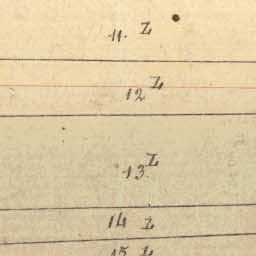 11. Z
12 Z
13. Z
14 Z
15 Z